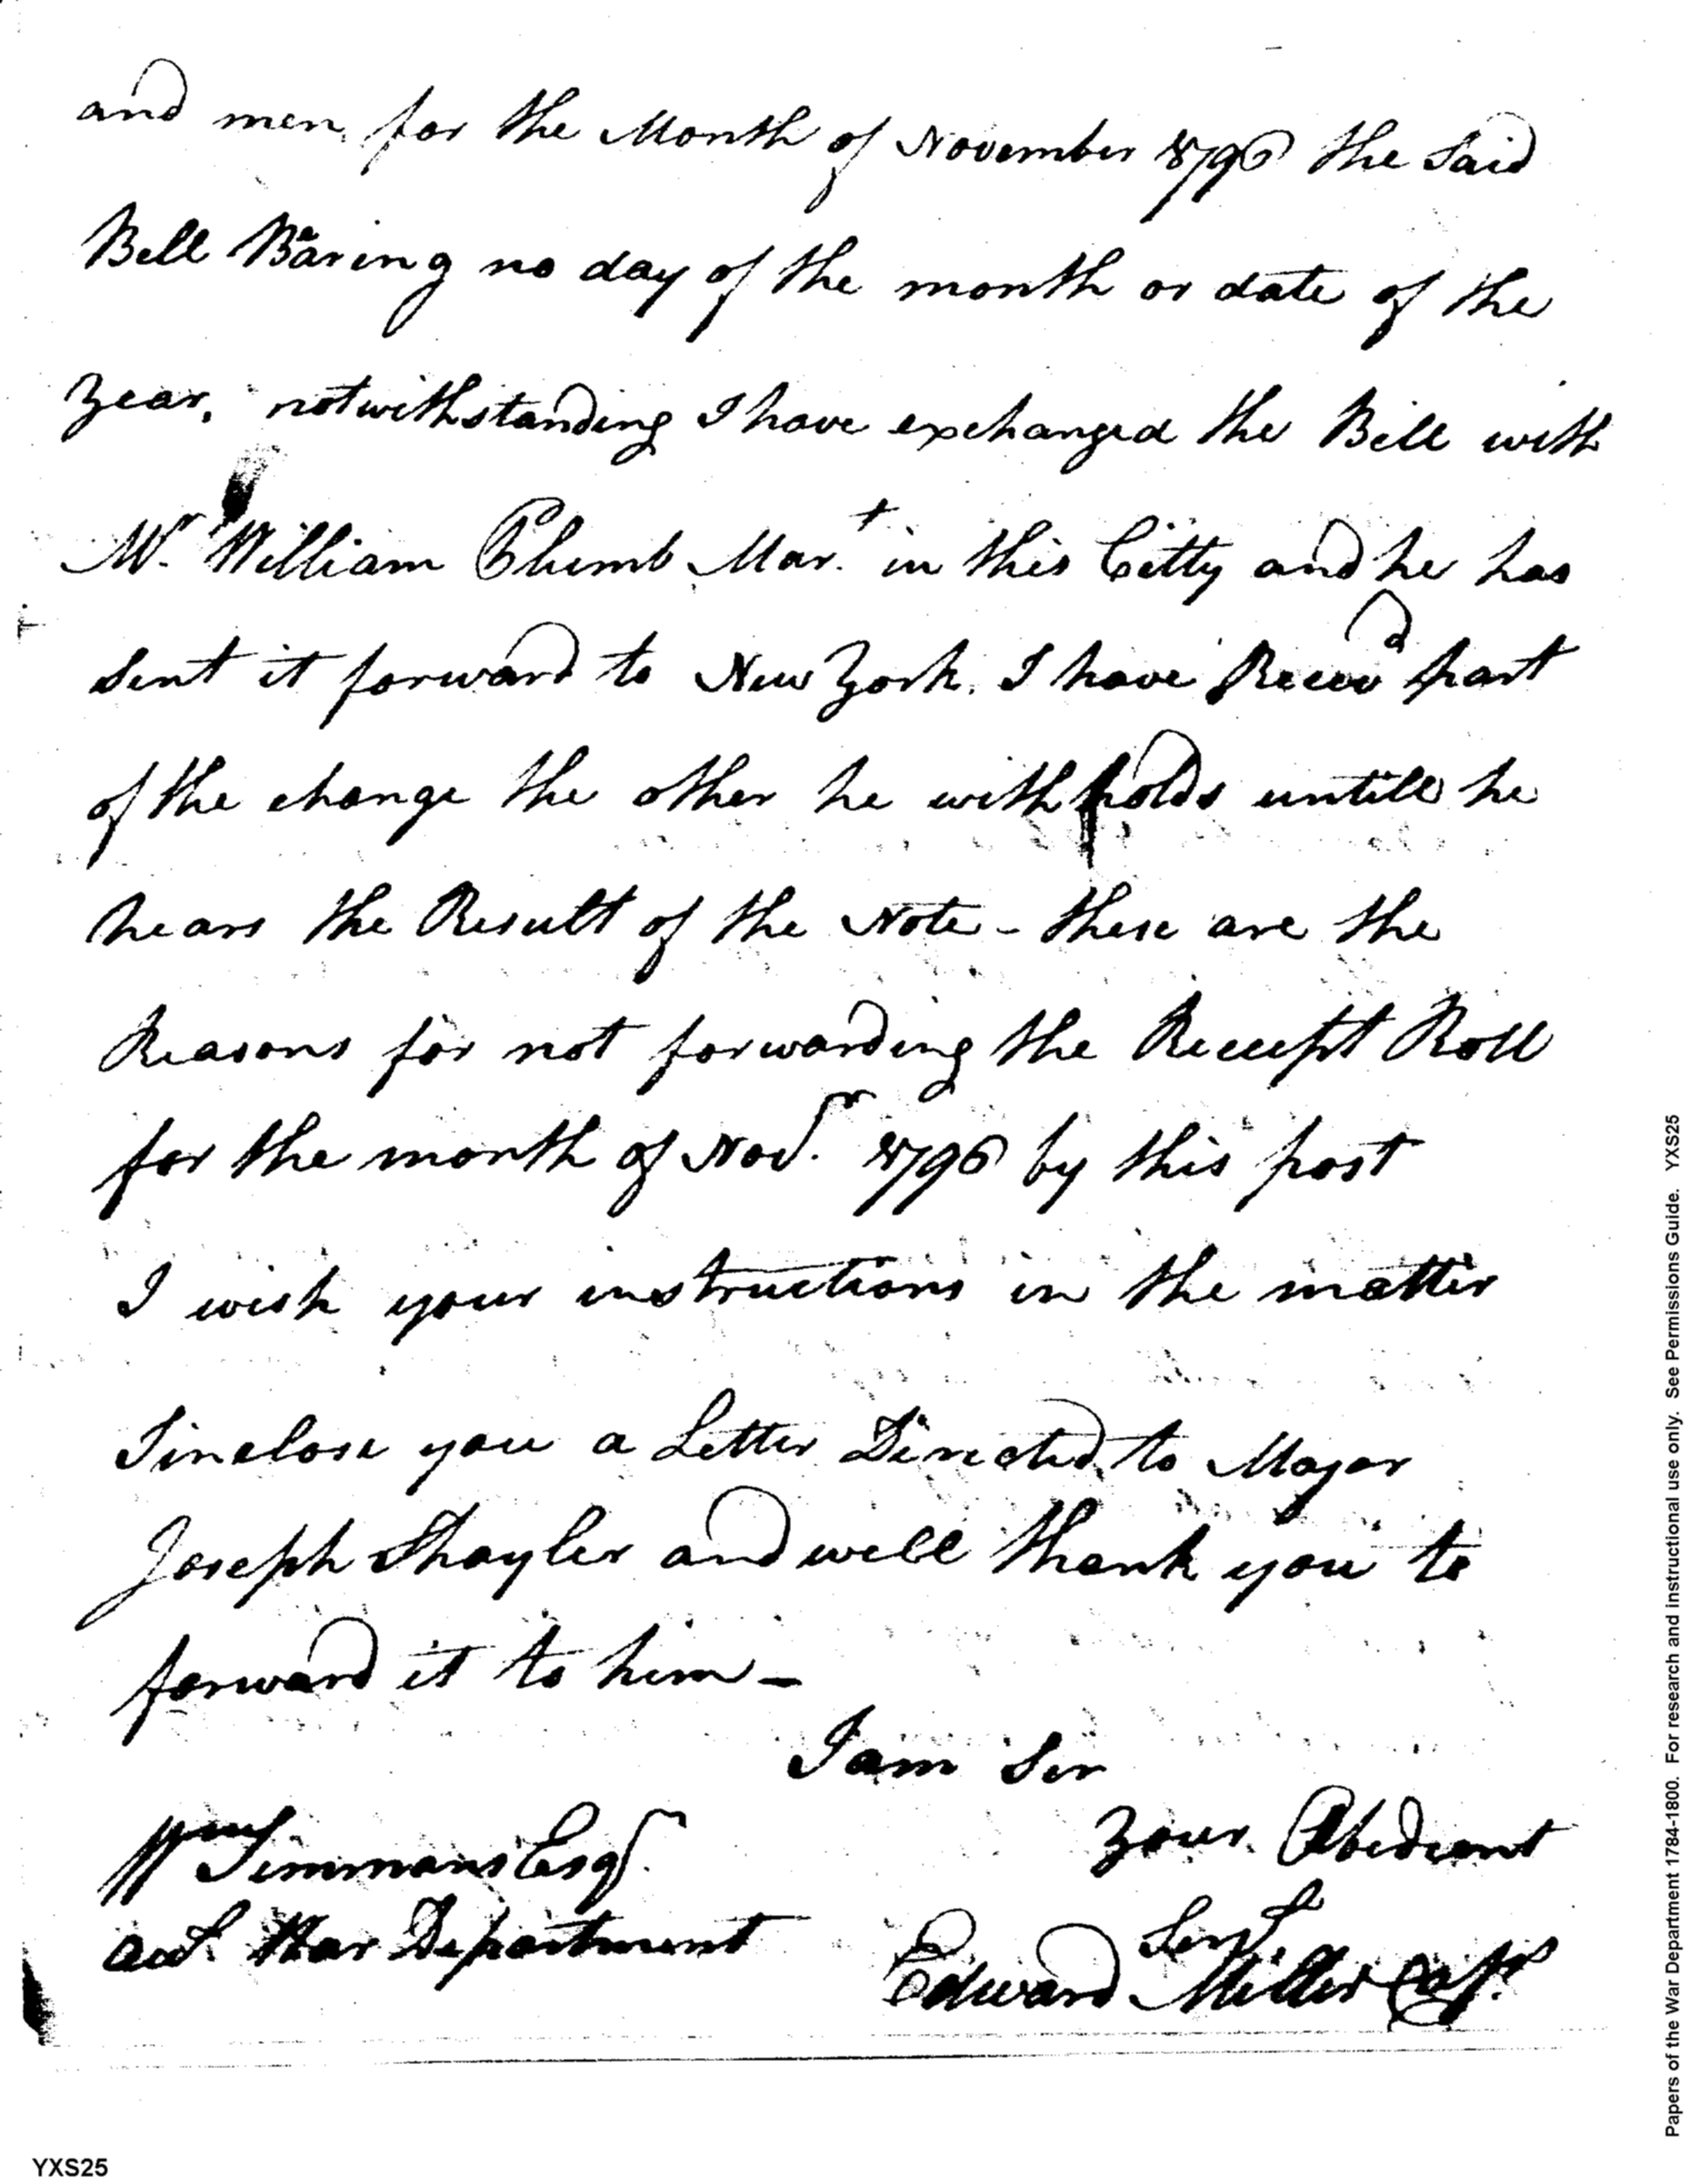 and men, for the Month of November 1796 the Said
Bell Bearing no day of the month or date of the
Year, notwithstanding I have exchanged the Bill with
Mr. William Plumb Mart. in this Citty and he has
Sent it forward to New York. I have Receivd part
of the change the other he withholds untill he
hears the Result of the Note - these are the
Reasons for not forwarding the Receipt Roll
for the month of Novr. 1796 by this post
I wish your instructions in the matter
I inclose you a Letter Directed to Major
Joseph Shayler and will thank you to
forward it to him -
I am Sir
Your Obedient
Servt.
Wm Simmons Esqr.
War Department
Edward Miller Capt.
Papers of the War Department 1784-1800. For research and instructional use only. See Permissions Guide. YXS25
YXS25